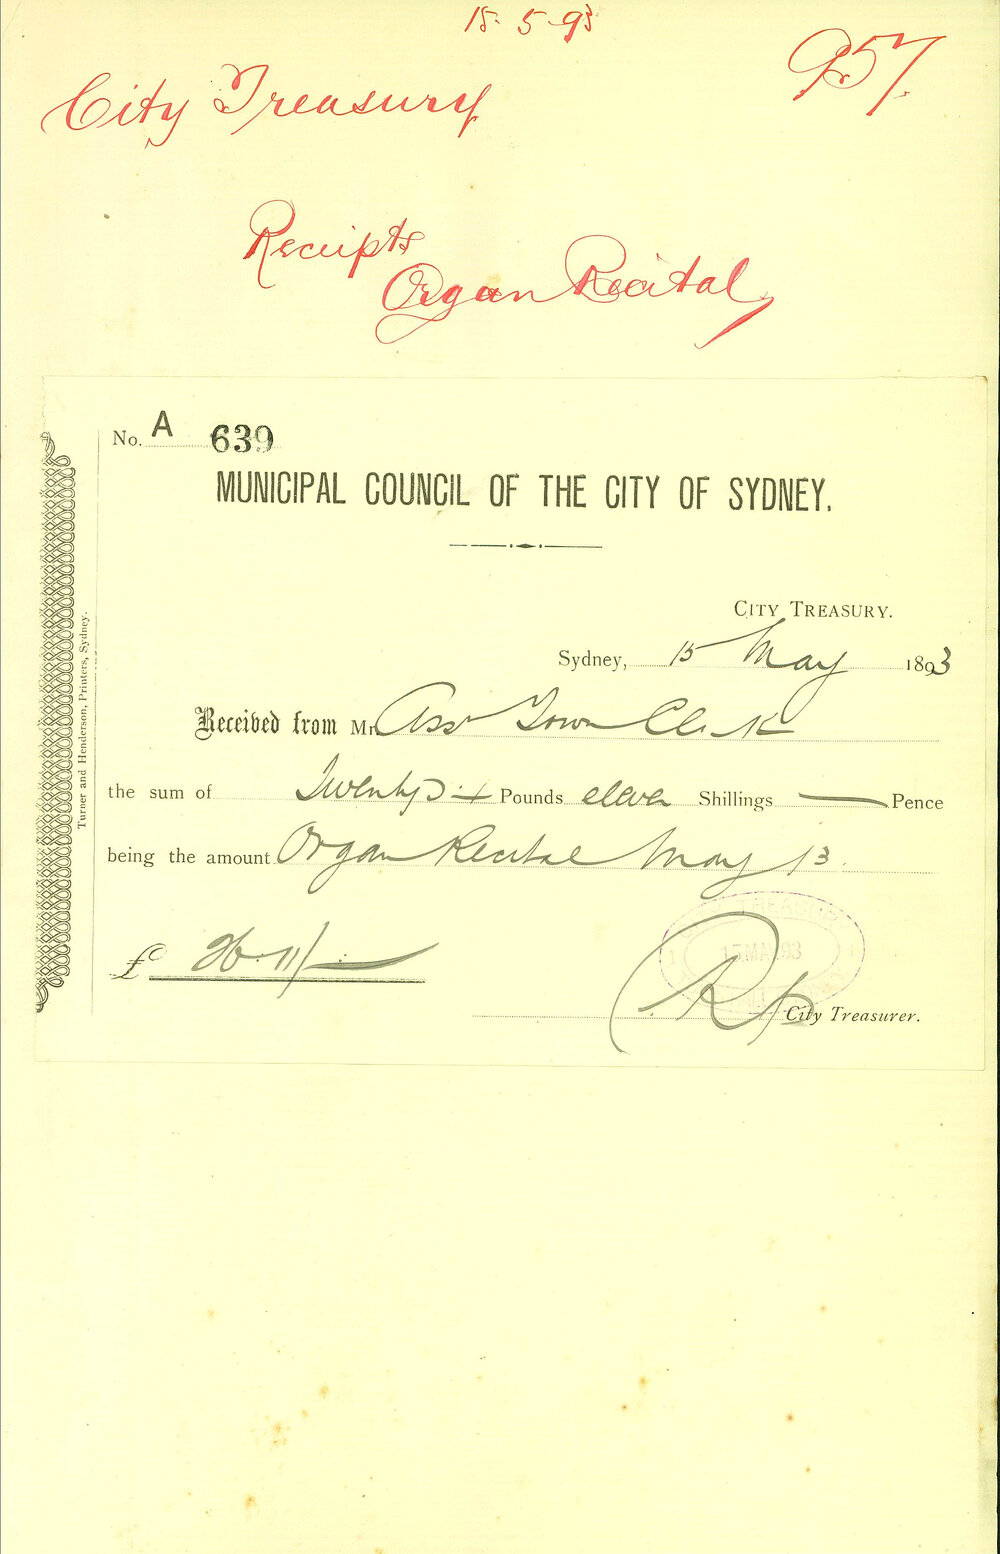 15-5-93
957.
City Treasury
Receipts
Organ Recital
No. A 639
MUNICIPAL COUNCIL OF THE CITY OF SYDNEY.
CITY TREASURY.
Sydney, 15 May 1893
Received from Mr Asst Town Clerk
the sum of Twenty Six Pounds eleven Shillings — Pence
being the amount Organ Recital May 13
£ 26.11/-
TREASURY
15 MA 93
City Treasurer.
Turner and Henderson, Printers, Sydney.